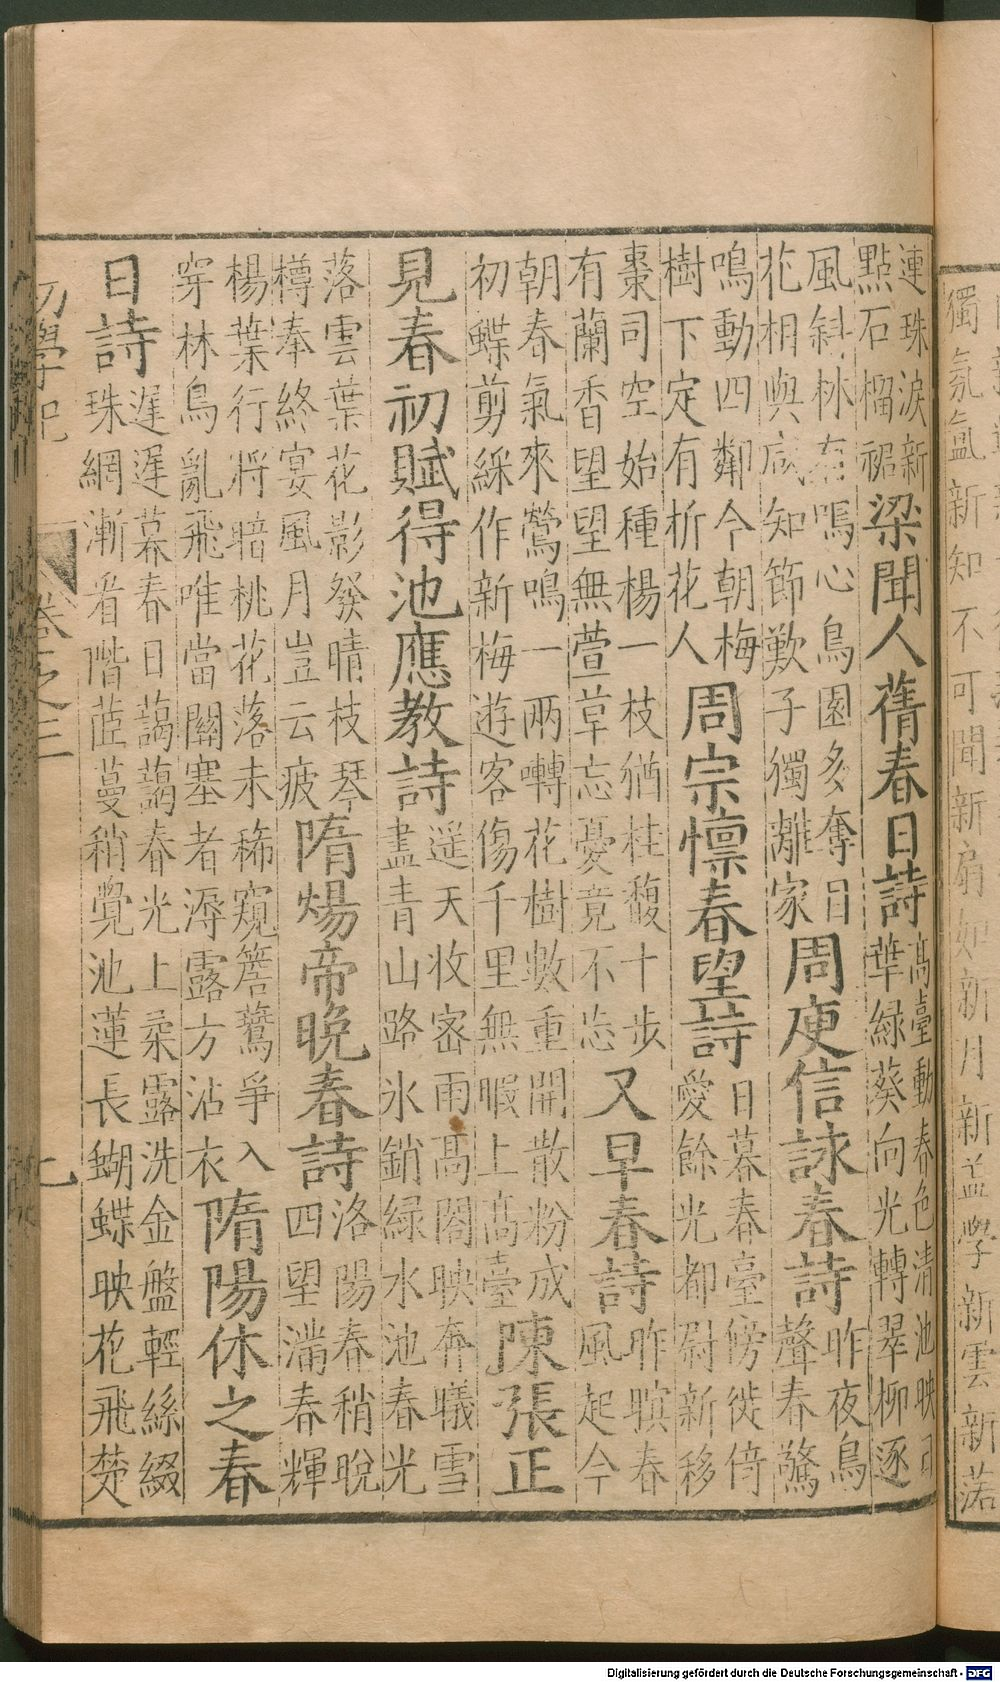 連珠淚新
點石榴裾
梁聞人蒨春日詩
高臺動春色清池映日
華綠葵向光轉翠柳逐
風斜林有鳴心鳥園多奪日
花相與咸知節歎子獨離家
周庾信詠春詩
昨夜鳥
聲春驚
鳴動四鄰今朝梅
樹下定有折花人
周宗懔春望詩
日暮春臺傍徙倚
愛餘光都尉新移
棗司空始種楊一枝猶桂馥十步
有蘭香望望無萱草忘憂竟不忘
又早春詩
昨暝春
風起今
朝春氣來鶯鳴一兩囀花樹數重開散粉成
初蝶剪綵作新梅遊客傷千里無暇上高臺
陳張正
見春初賦得池應教詩
遥天收密雨高閣映奔曦雪
盡青山路氷銷緑水池春光
落雲葉花影發晴枝琴
樽奉終宴風月豈云疲
隋煬帝晚春詩
洛陽春稍晚
四望滿春輝
楊葉行將暗桃花落未稀窺簷鷰爭入
穿林鳥亂飛唯當關塞者溽露方沾衣
隋陽休之春
日詩
遲遲暮春日藹藹春光上柔露洗金盤輕絲綴
珠網漸看階茝蔓稍覺池蓮長蝴蝶映花飛楚
初學記 卷之三 七
獨氛氳新知不可聞新扇如新月新盖學新雲新落
Digitalisierung gefördert durch die Deutsche Forschungsgemeinschaft - DFG